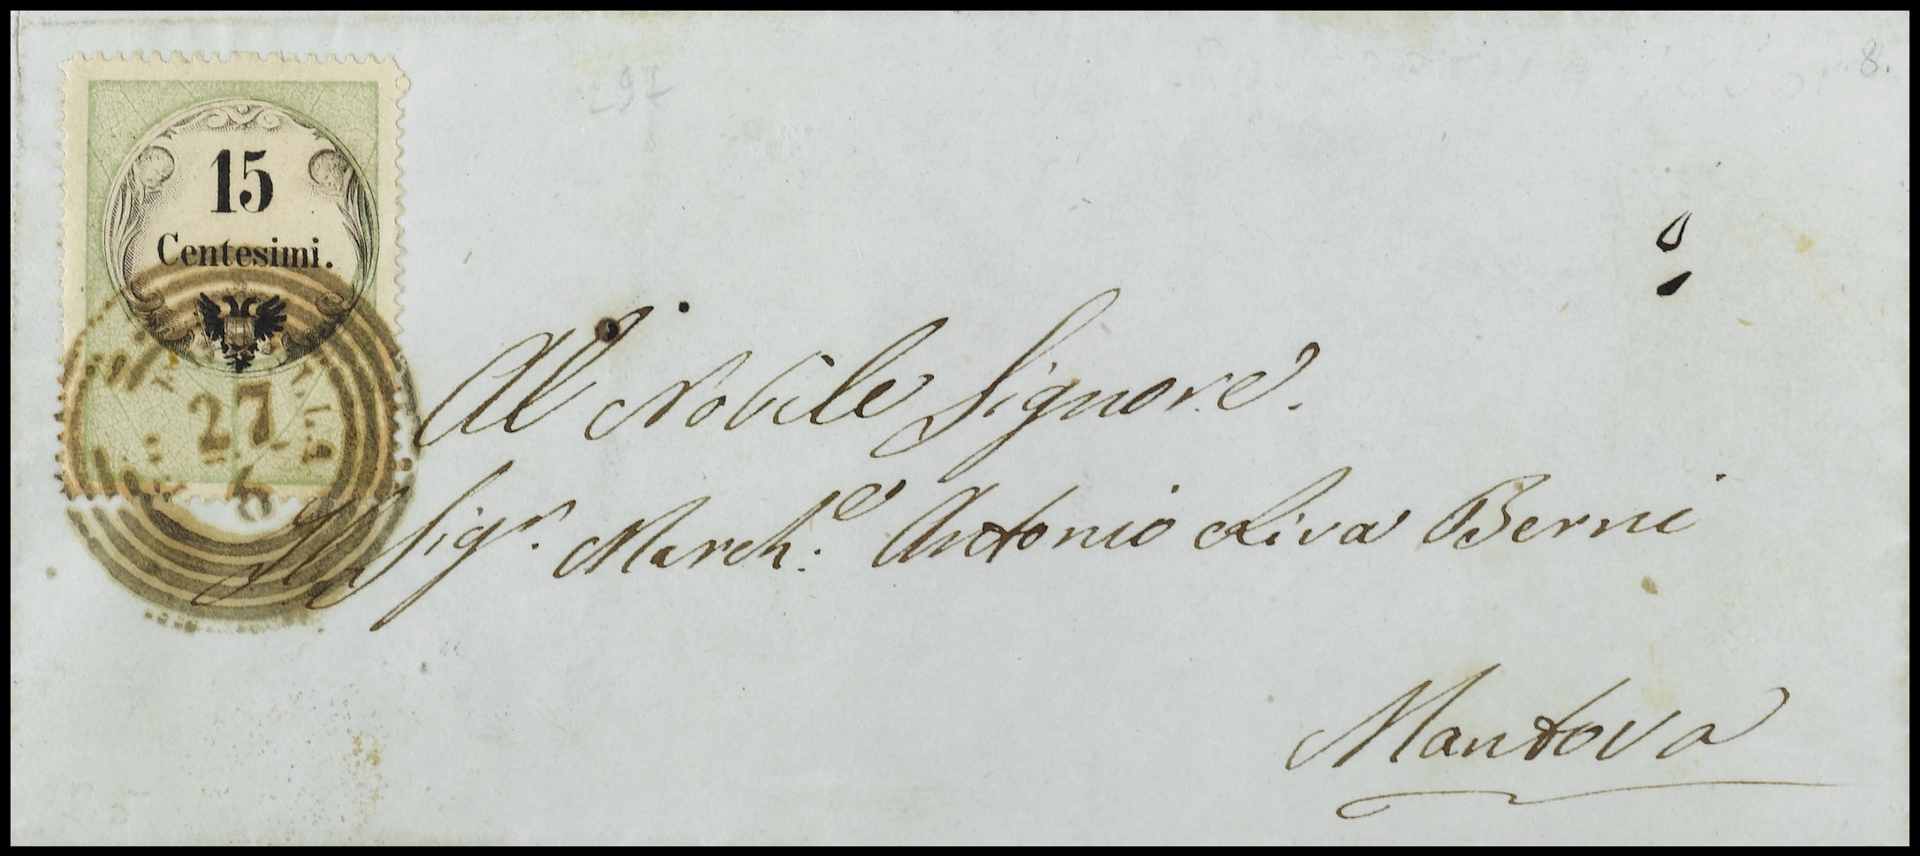 15
Centesimi.
27
6
Al Nobile Signore.
Il Sigr. Marche. Antonio Riva Berni
Mantova
297
8.